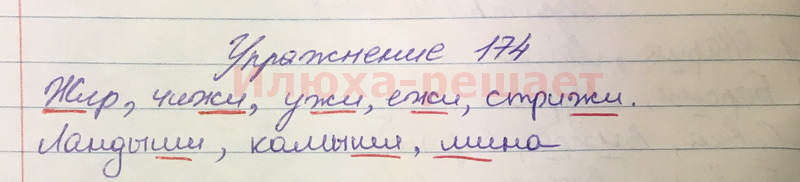 Упражнение 174
Илюха-решает
Жир, чижи, ужи, ежи, стрижи.
Ландыши, камыши, шина